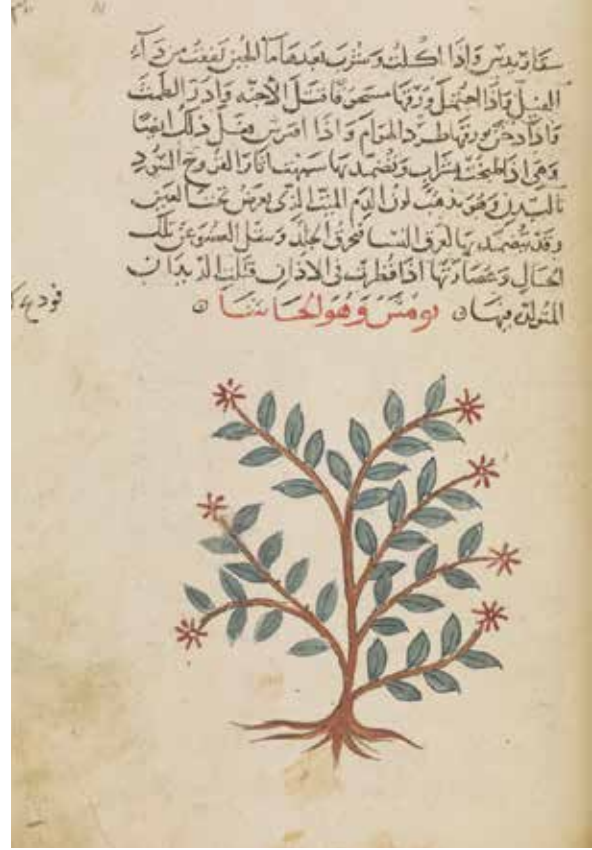 واذا اكلت وشرب بعدها ماء الجبن نفعت من داء
الفيل واذا احتمل ورقها مسحوقا قتل الاجنة وادر الطمث
واذا دخن بورقها طرد الهوام واذا افترش فعل ذلك ايضا
وهى اذا طبخت بشراب وتضمد بها آثار القروح السود
بالبدن وهو يذهب لون الدم الميت الذى يعرض تحت العين
وقد يتضمد بها لعرق النسا فتحرق الجلد وتنقل العضو عن تلك
الحال وعصارتها اذا قطرت فى الاذان قتلت الديدان
المتولدة فيها
ثومس وهو الحاشا